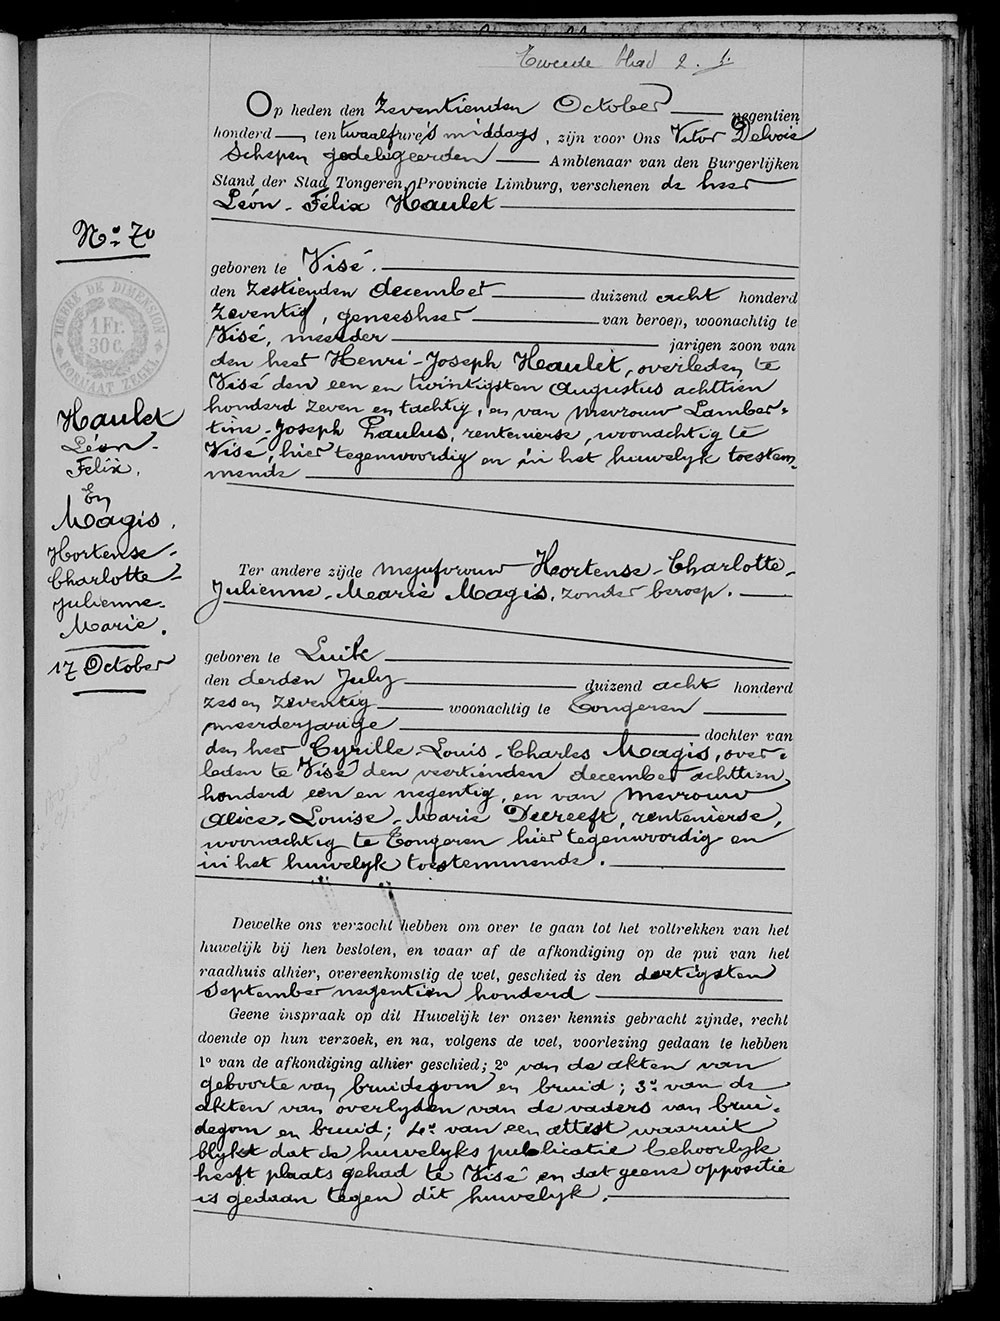 Tweede blad 2.
Op heden den Zeventienden October negentien
honderd ten twaalf ure's middags, zijn voor Ons Victor Delvoie
Schepen gedelegeerden Ambtenaar van den Burgerlijken
Stand der Stad Tongeren, Provincie Limburg, verschenen de heer
Léon-Félix Haulet
No. 70
geboren te Visé.
den zestienden december duizend acht honderd
Zeventig, geneesheer van beroep, woonachtig te
Visé, meerder jarigen zoon van
den heer Henri-Joseph Haulet, overleden te
Visé den een en twintigsten Augustus achttien
honderd zeven en tachtig, en van mevrouw Lamber-
tine-Joseph Paulus, rentenierse, woonachtig te
Visé, hier tegenwoordig en in het huwelyk toestem-
mende
TIMBRE DE DIMENSION
1 Fr.
30 C.
FORMAAT ZEGEL
Haulet
Léon-
Felix.
En
Magis.
Hortense-
Charlotte-
Julienne-
Marie.
17 October
Ter andere zijde mejufvrouw Hortense-Charlotte-
Julienne-Marie Magis, zonder beroep.
geboren te Luik
den derden July duizend acht honderd
zes en zeventig woonachtig te Tongeren
meerderjarige dochter van
den heer Cyrille-Louis-Charles Magis, over-
leden te Visé den veertienden december achttien
honderd een en negentig, en van Mevrouw
Alice-Louise-Marie Decreeft, rentenierse,
woonachtig te Tongeren hier tegenwoordig en
in het huwelyk toestemmende.
Dewelke ons verzocht hebben om over te gaan tot het voltrekken van het
huwelijk bij hen besloten, en waar af de afkondiging op de pui van het
raadhuis alhier, overeenkomstig de wet, geschied is den dertigsten
September negentien honderd
Geene inspraak op dit Huwelijk ter onzer kennis gebracht zijnde, recht
doende op hun verzoek, en na, volgens de wet, voorlezing gedaan te hebben
1o van de afkondiging alhier geschied; 2o van de akten van
geboorte van bruidegom en bruid; 3o van de
akten van overlyden van de vaders van brui-
degom en bruid; 4o van een attest waaruit
blykt dat de huwelyks publicatie behoorlyk
heeft plaats gehad te Visé en dat geene oppositie
is gedaan tegen dit huwelyk.